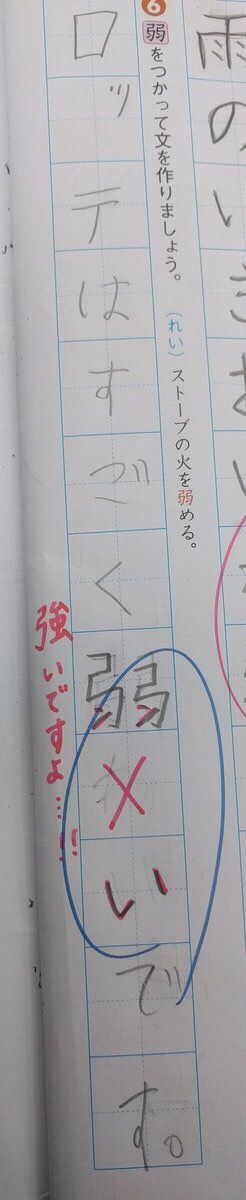 雨のいきおい
6 弱をつかって文を作りましょう。
(れい) ストーブの火を弱める。
ロッテはすごく弱いです。
強いですよ…!!